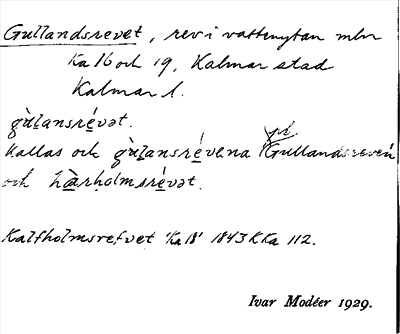 Gullandsrevet, rev i vattenytan mln
Ka 16 och 19, Kalmar stad
Kalmar l.
gùlansrévət.
på
Kallas och gùlansrévena (Gullandsreven)
och hàrholmsrévət.
Kalfholmsrefvet "Ka 18" 1843 KKa 112.
Ivar Modéer 1929.